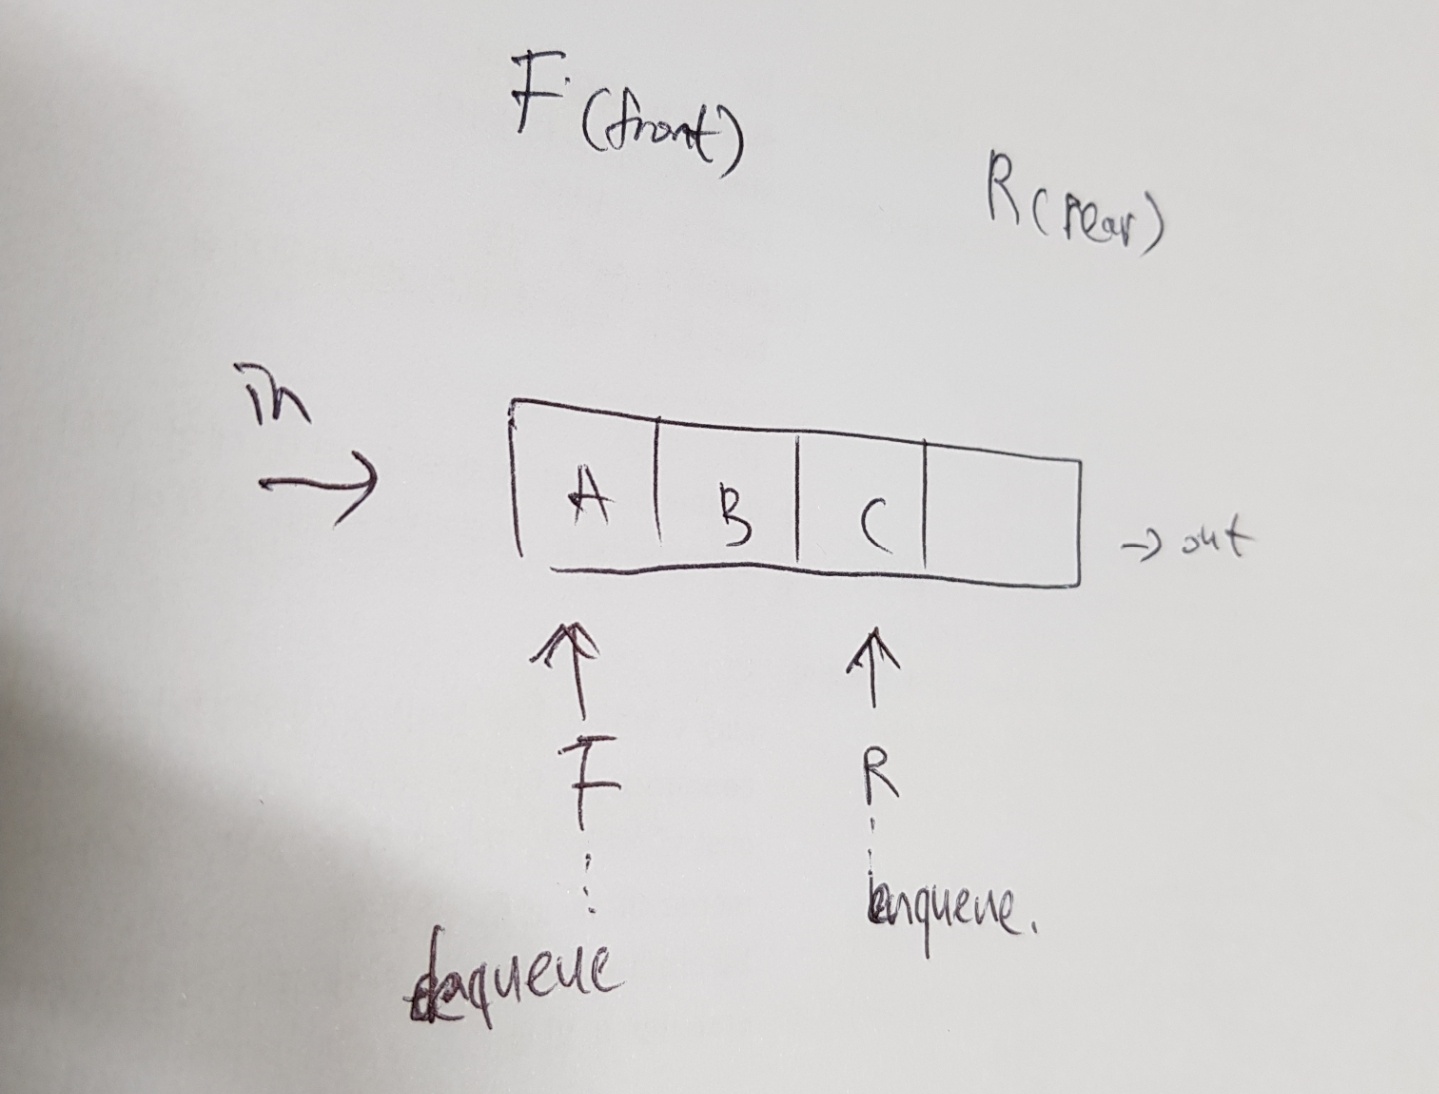 F (front)
R (rear)
in
A B C
→ out
F
R
enqueue.
dequeue